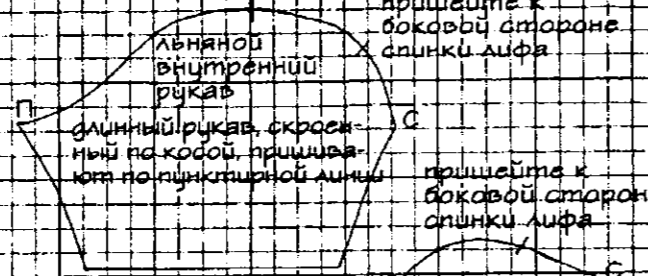 пришейте к
боковой стороне
спинки лифа
льняной
внутренний
рукав
П
С
длинный рукав, скроен-
ный по косой, пришива-
ют по пунктирной линии
пришейте к
боковой сторон
спинки лифа
С